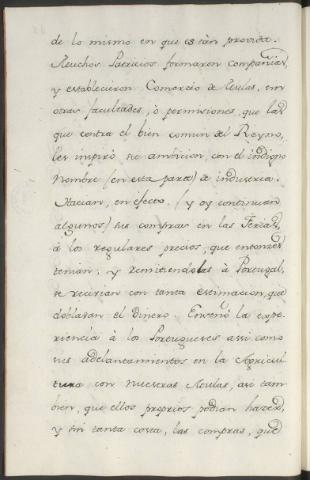 de lo mismo en que estàn provida.
Muchos Patricios formaron compañias,
y establecieron Comercio de Mulas, sin
otras facultades, ò permisiones, que las
que contra el bien comun del Reyno,
les inspirò su ambicion, con el indigno
Nombre (en esta parte) de industria.
Hacian, en efecto (y oy continuan
algunos) sus compras en las Ferias,
à los regulares precios, que entonces
tenian, y remitiendolas à Portugal,
se recivian con tanta estimacion, que
doblaban el Dinero. Enseñò la expe-
riencia à los Portugueses assi como
sus adelantamientos en la Agricul
tura con nuestras Mulas, assi tam
bien, que ellos proprios podian hazer,
y sin tanta costa, las compras, que